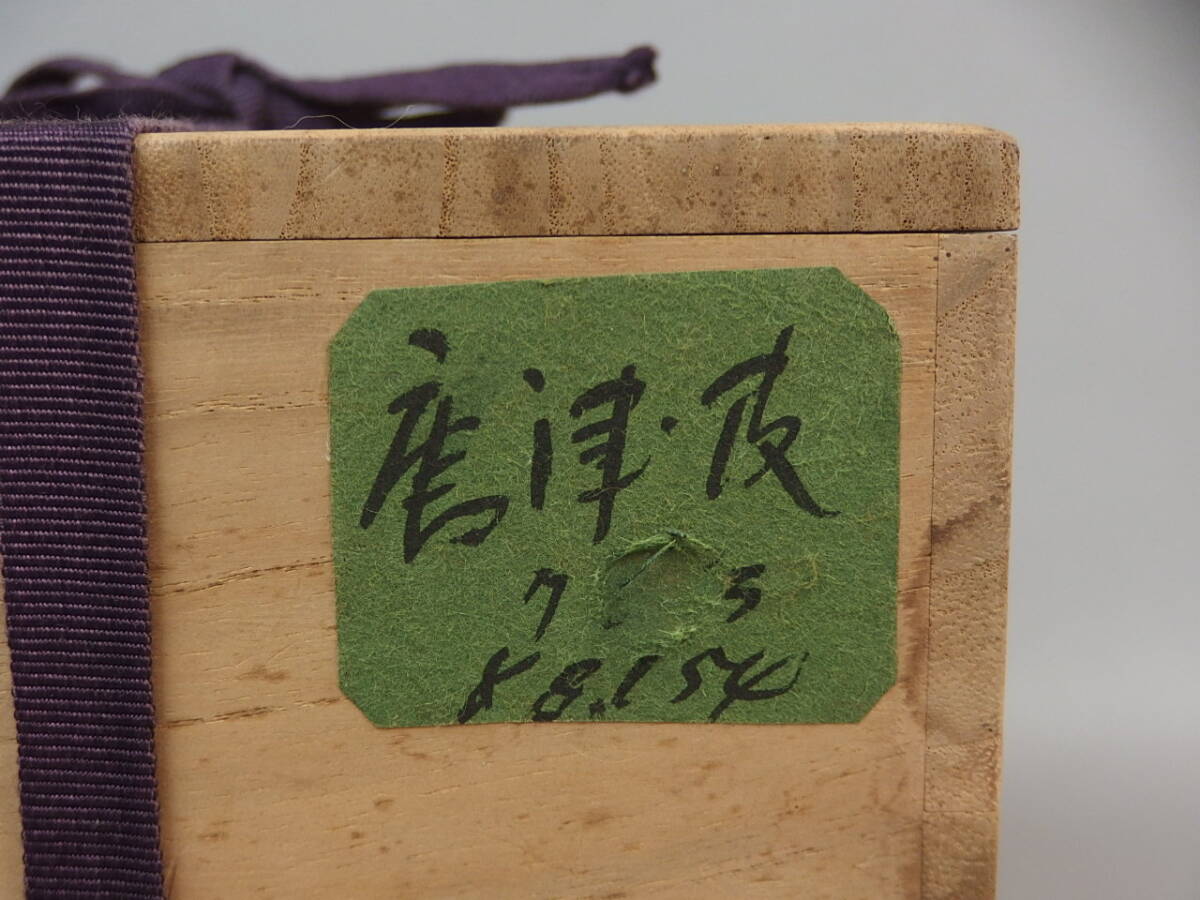 唐津・皮
7 3
88.154